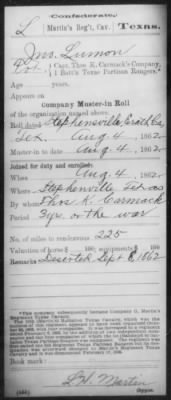 Confederate.
L Martin's Reg't, Cav. Texas.
Jno. Lumon
Pvt. Capt. Theo. K. Carmack's Company,
Bott's Texas Partisan Rangers.*
Age years.
Appears on
Company Muster-in Roll
of the organization named above.
Roll dated Stephensville, Erath Co.
Tex Aug 4, 1862.
Muster-in to date Aug 4, 1862.
Joined for duty and enrolled:
When Aug 4, 1862.
Where Stephenville Texas
By whom Theo. K. Carmack
Period 3 yr. or the war
No. of miles to rendezvous 225
Valuation of horse $ 100; equipments $ 100
Remarks Deserted Sept 8, 1862
*This company subsequently became Company G, Martin's Regiment Texas Cavalry.
Book mark:
L. H. Martin
Copyist.